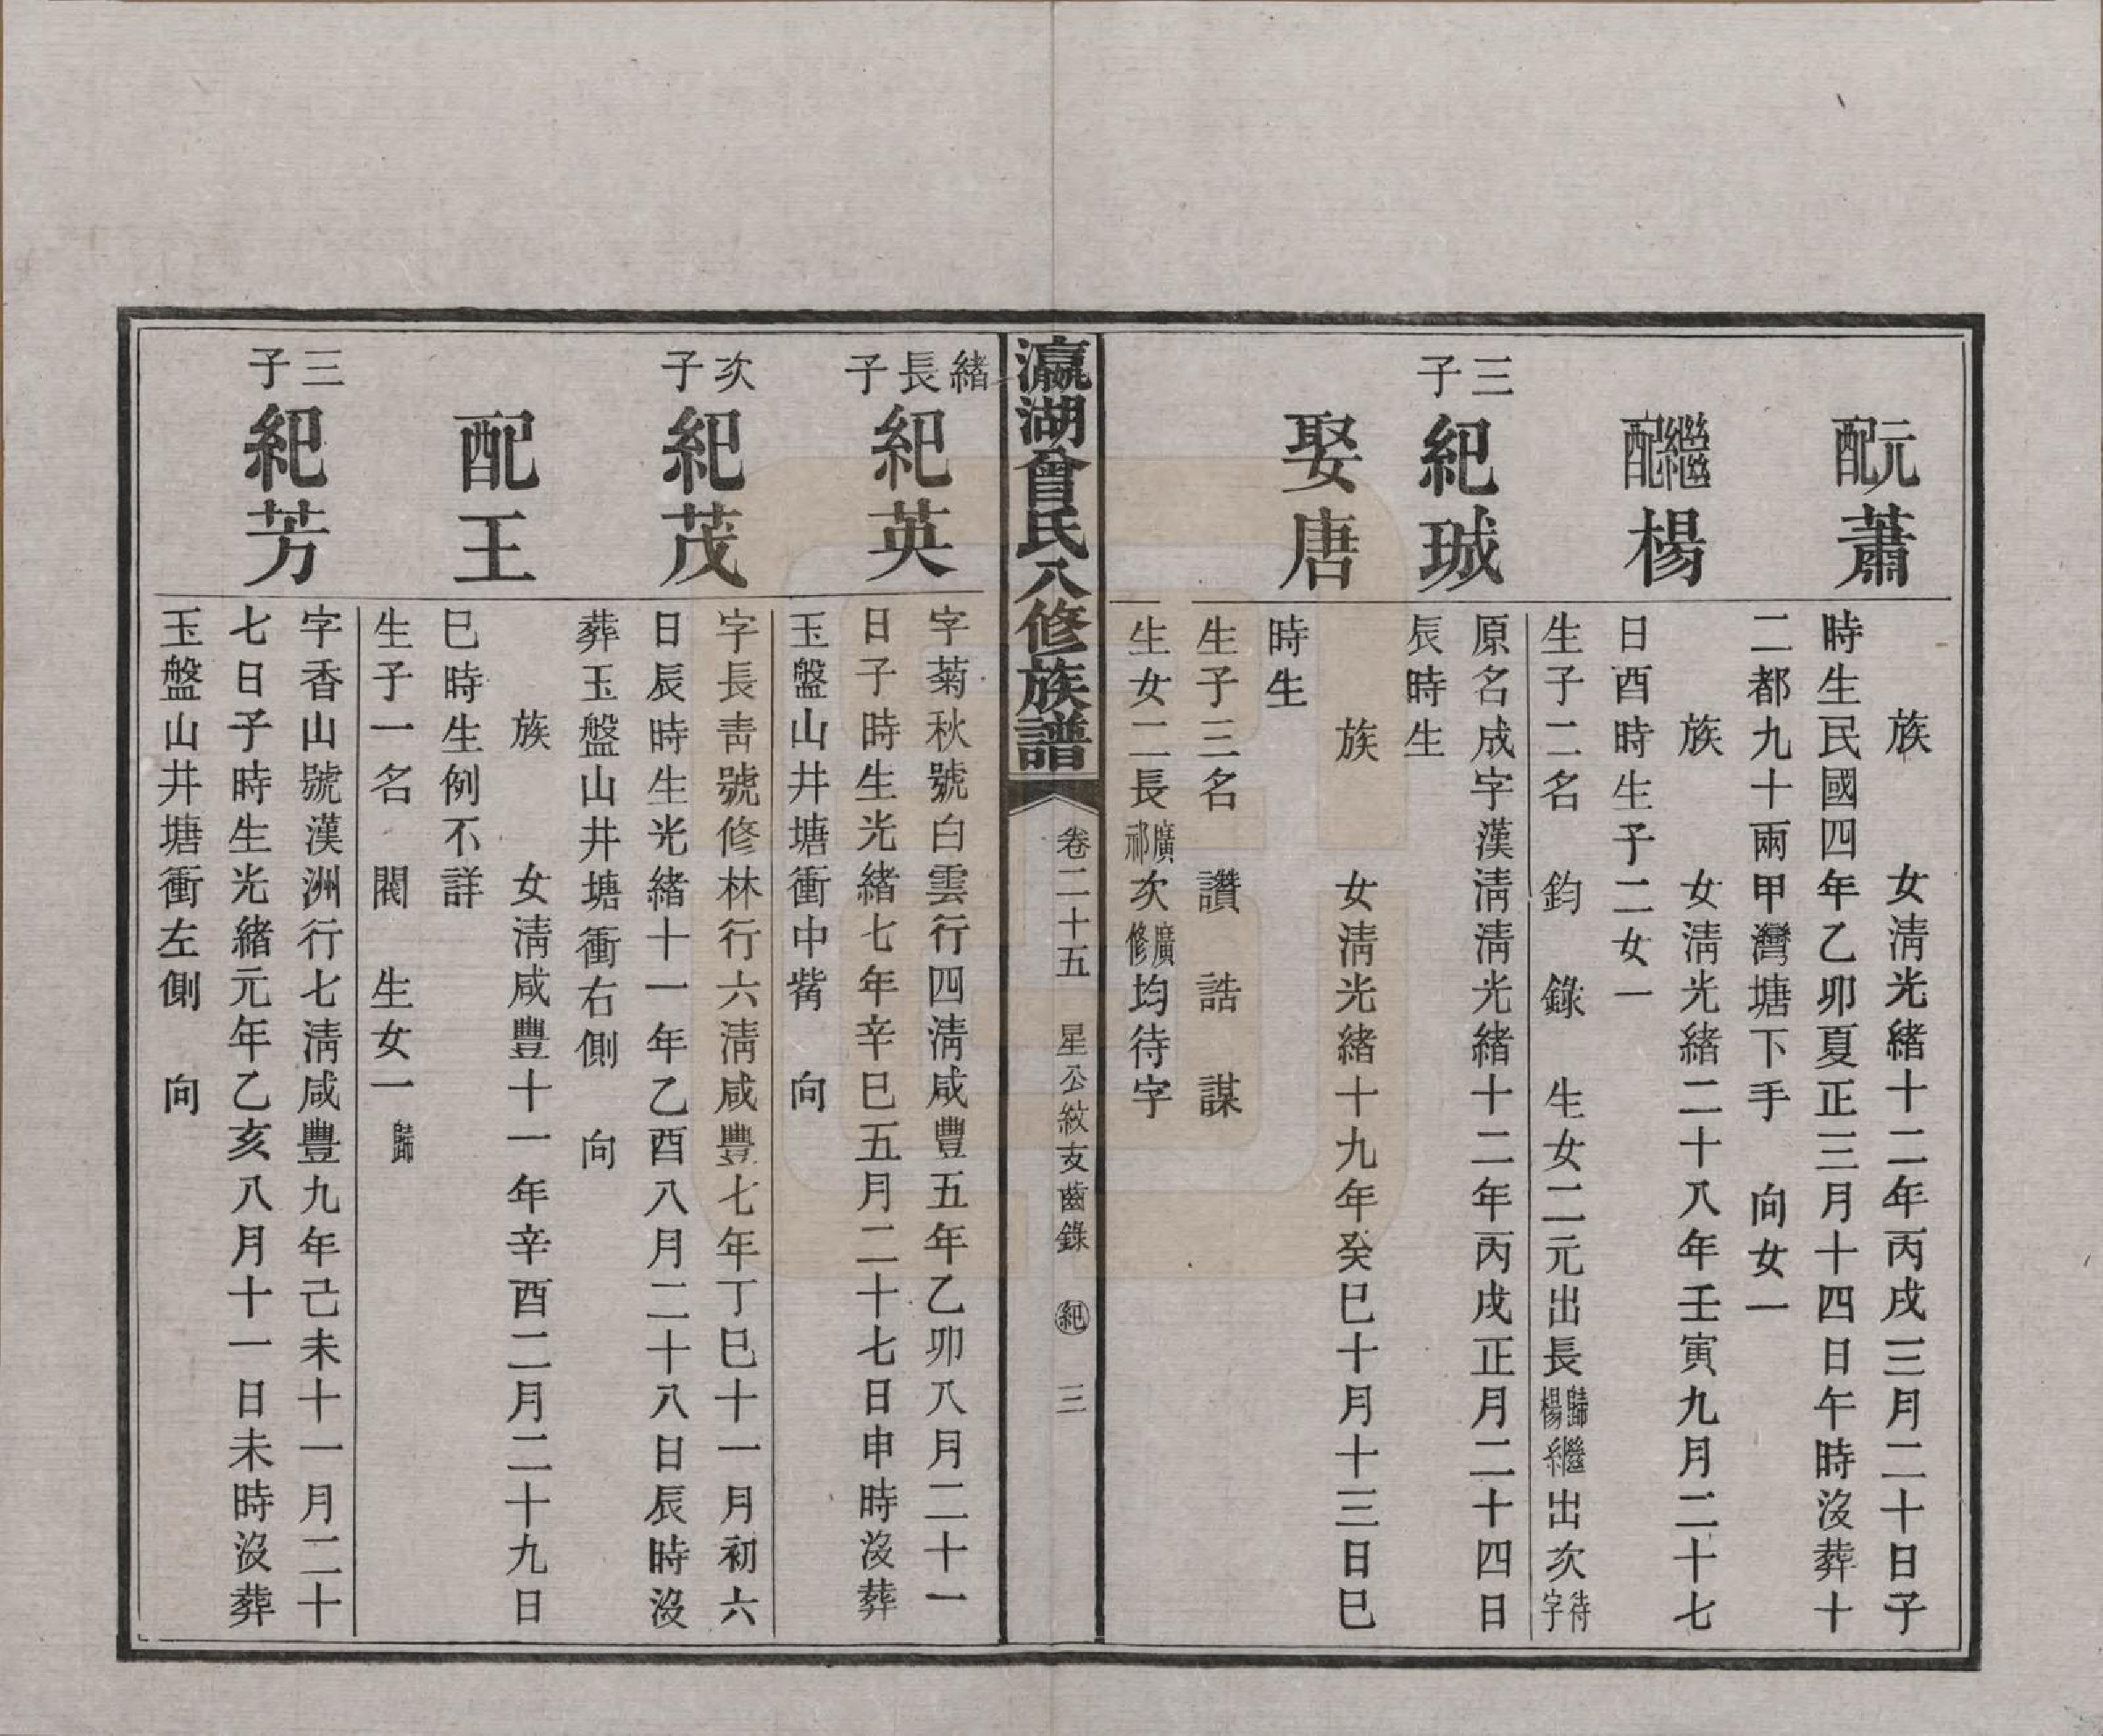 元配蕭
族　女淸光緒十二年丙戌三月二十日子
時生民國四年乙卯夏正三月十四日午時沒葬十
二都九十兩甲灣塘下手　向女一
繼配楊
族　女淸光緒二十八年壬寅九月二十七
日酉時生子二女一
生子二名　鈞　錄　生女二元出長歸楊繼出次待字
三子
紀珹
原名成字漢淸淸光緒十二年丙戌正月二十四日
辰時生
娶唐
族　女淸光緒十九年癸巳十月十三日巳
時生
生子三名　讚　誥　謀
生女二長廣祁次廣修均待字
瀛湖曾氏八修族譜
卷二十五　星公紋支齒錄　紀　三
緒長子
紀英
字菊秋號白雲行四淸咸豐五年乙卯八月二十一
日子時生光緒七年辛巳五月二十七日申時沒葬
玉盤山井塘衝中觜　向
次子
紀茂
字長靑號修林行六淸咸豐七年丁巳十一月初六
日辰時生光緒十一年乙酉八月二十八日辰時沒
葬玉盤山井塘衝右側　向
配王
族　女淸咸豐十一年辛酉二月二十九日
巳時生例不詳
生子一名　閣　生女一歸
三子
紀芳
字香山號漢洲行七淸咸豐九年己未十一月二十
七日子時生光緒元年乙亥八月十一日未時沒葬
玉盤山井塘衝左側　向